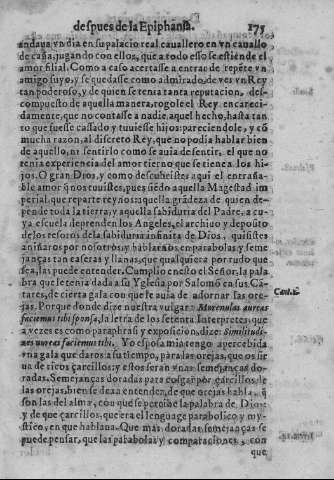 despues de la Epiphania. 175
andaua vn dia en su palacio real cauallero en vn cauallo
de caña, jugando con ellos, que a todo esso se estiende el
amor filial. Como a caso acertasse a entrar de repẽte vn
amigo suyo, y se quedasse como admirado, de ver vn Rey
tan poderoso, y de quien se tenia tanta reputacion, des-
compuesto de aquella manera, rogole el Rey encarecida-
mente, que no contasse a nadie aquel hecho, hasta tan
to que fuesse casado y tuuiesse hijos: pareciendole, y cõ
mucha razon, al discreto Rey, que no podia hablar bien
de aquello, ni sentirlo como se auia de sentir, el que no
tenia experiencia del amor tierno que se tiene a los hi-
jos. O gran Dios, y como descubristes aqui el entraña-
ble amor q̃ nos tuuistes, pues siẽdo aquella Magestad im
perial, que reparte reynos: aquella grãdeza de quien de-
pẽde toda la tierra, y aquella sabiduria del Padre, a cu-
ya escuela deprenden los Angeles, el archiuo y deposito
de los tesoros de la sabiduria infinita de Dios, quisistes
aniñaros por nosotros, y hablarnos en parabolas y seme-
janças tan caseras y llanas, que qualquiera por rudo que
sea, las puede entender. Cumplio en esto el Señor, la pala
bra que le tenia dada a su Yglesia por Salomõ en sus Cã-
tares, de cierta gala con que le auia de adornar las ore-
jas. Porque donde dize nuestra vulgar: Murenulas aureas
faciemus tibi sponsa, la letra de los setenta Interpretes, que
a vezes es como paraphrasi y exposicion, dize: Similitudi-
nes aureas faciemus tibi. Yo esposa mia tengo apercebida
vna gala que daros a su tiempo, para las orejas, que os sir
ua de ricos çarcillos: y estos seran vnas semejanças do-
radas. Semejanças doradas para colgar por çarcillos de
las orejas, bien se dexa entender, de que orejas habla, q̃
son las del alma, con que se percibe la palabra de Dios:
y de que çarcillos, que era el lenguage parabolico y my-
stico, en que hablaua. Que mas doradas semejanças se
puede pensar, que las parabolas y comparaciones, con
que
Cant. 1.